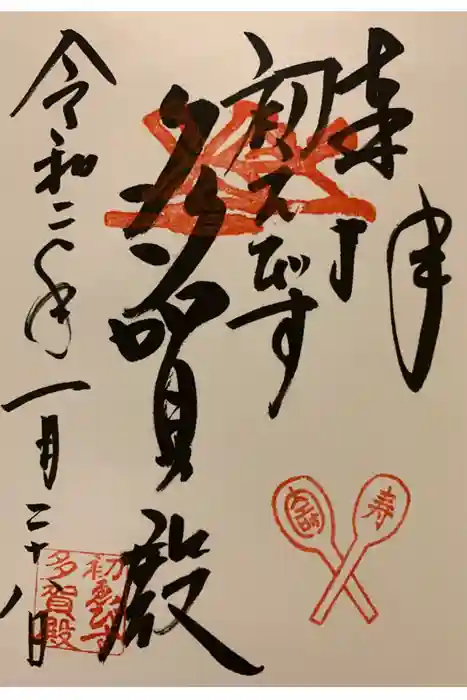 奉拝
初えびす
多賀殿
令和二年一月二十八日
寿
多賀殿